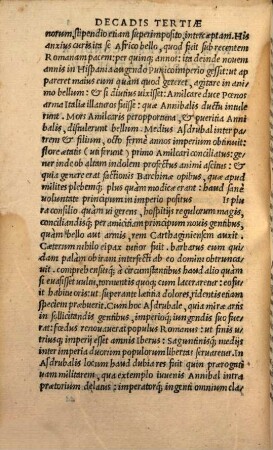 DECADIS TERTIÆ
notum, stipendio etiam superimposito, interceptam. His
anxius curis ita se Africo bello, quod fuit sub recentem
Romanam pacem: per quinq; annos: ita deinde nouem
annis in Hispania augendo Punico imperio gessit: ut ap
pareret maius eum quàm quod gereret, agitare in ani
mo bellum: & si diutius uixisset: Amilcare duce Pœnos
arma Italiæ illaturos fuisse: quæ Annibalis ductu intule
runt. Mors Amilcaris peropportuna, & pueritia Anni
balis, distulerunt bellum. Medius Asdrubal inter pa
trem & filium, octo ferme annos imperium obtinuit:
flore ætatis (ut ferunt) primo Amilcari conciliatus: ge
ner inde ob altam indolem profectus animi ascitus: &
quia gener erat factionis Barchinæ opibus, quæ apud
milites plebemq; plus quàm modicæ erant: haud sanè
uoluntate principum in imperio positus Is plu
ra consilio quàm ui gerens, hospitijs regulorum magis,
conciliandisq; per amicitiam principum nouis gentibus,
quàm bello aut armis, rem Carthaginensem auxit.
Cæterum nihilo ei pax tutior fuit. barbarus eum qui
dam palàm ob iram interfecti ab eo domini obtrunca
uit. comprehensusq; à circunstantibus haud alio quàm
si euasisset uultu, tormentis quoq; cum laceraretur: eo fu
it habitu oris: ut superante lætitia dolores, ridentis etiam
speciem præbuerit. Cum hoc Asdrubale, quia miræ artis
in sollicitandis gentibus, imperioq; iungendis suo fue
rat: fœdus renouauerat populus Romanus: ut finis u
triusq; imperij esset amnis Iberus: Saguntinisq; medijs
inter imperia duorum populorum libertas seruaretur. In
Asdrubalis locum haud dubia res fuit quin prærogati
uam militarem, qua extemplo iuuenis Annibal in
prætorium delatus; imperatorq; ingenti omnium cla